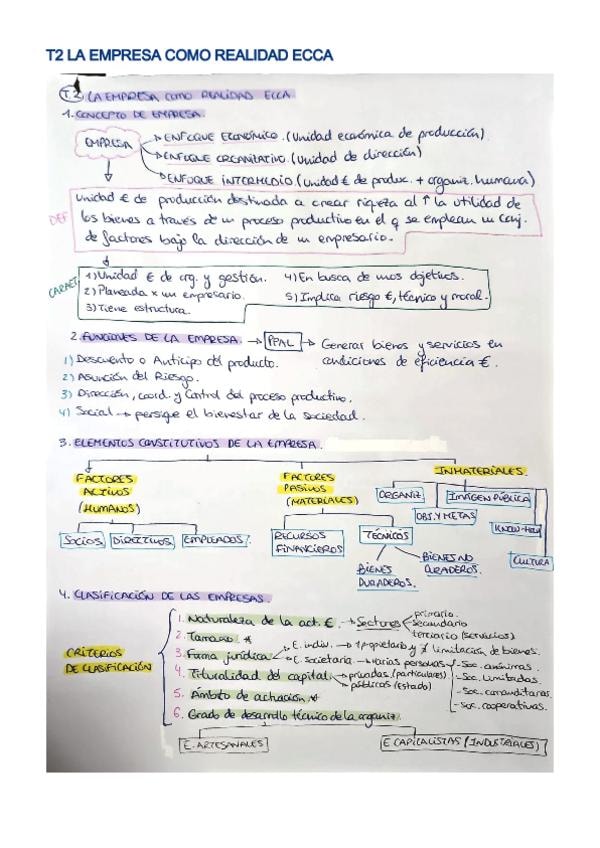 T2 LA EMPRESA COMO REALIDAD ECCA
T.2 LA EMPRESA COMO REALIDAD ECCA.
1. CONCEPTO DE EMPRESA.
EMPRESA
→ ENFOQUE ECONÓMICO. (Unidad económica de producción)
→ ENFOQUE ORGANIZATIVO. (Unidad de dirección)
→ ENFOQUE INTERMEDIO. (Unidad € de produc. + organiz. humana)
DEF
Unidad € de producción destinada a crear riqeza al ↑ la utilidad de
los bienes a través de un proceso productivo en el q se emplean un conj.
de factores bajo la dirección de un empresario.
CARACT.
1) Unidad € de org. y gestión.
2) Planeada x un empresario.
3) Tiene estructura.
4) En busca de unos objetivos.
5) Implica riesgo €, técnico y moral.
2. FUNCIONES DE LA EMPRESA. → PPAL → Generar bienes y servicios en
condiciones de eficiencia €.
1) Descuento o Anticipo del producto.
2) Asunción del Riesgo.
3) Dirección, coord. y Control del proceso productivo.
4) Social → persigue el bienestar de la sociedad.
3. ELEMENTOS CONSTITUTIVOS DE LA EMPRESA.
FACTORES
ACTIVOS
(HUMANOS)
SOCIOS
DIRECTIVOS
EMPLEADOS
FACTORES
PASIVOS
(MATERIALES)
RECURSOS
FINANCIEROS
TÉCNICOS
BIENES
DURADEROS.
BIENES NO
DURADEROS.
INMATERIALES
ORGANIZ
OBJ. Y METAS
IMAGEN PÚBLICA
KNOW-HOW
CULTURA
4. CLASIFICACIÓN DE LAS EMPRESAS.
CRITERIOS
DE CLASIFICACIÓN
1. Naturaleza de la act. €. → Sectores
primario.
secundario
terciario (servicios)
2. Tamaño *
3. Forma jurídica
→ E. indiv. → 1 propietario y ∄ limitación de bienes.
→ E. societaria. → varias personas
- Soc. anónimas.
- Soc. Limitadas.
- Soc. comanditarias.
- Soc. cooperativas.
4. Titularidad del capital.
privadas (particulares)
públicas (Estado)
5. Ámbito de actuación. *
6. Grado de desarrollo técnico de la organiz.
E. ARTESANALES
E CAPITALISTAS (INDUSTRIALES)